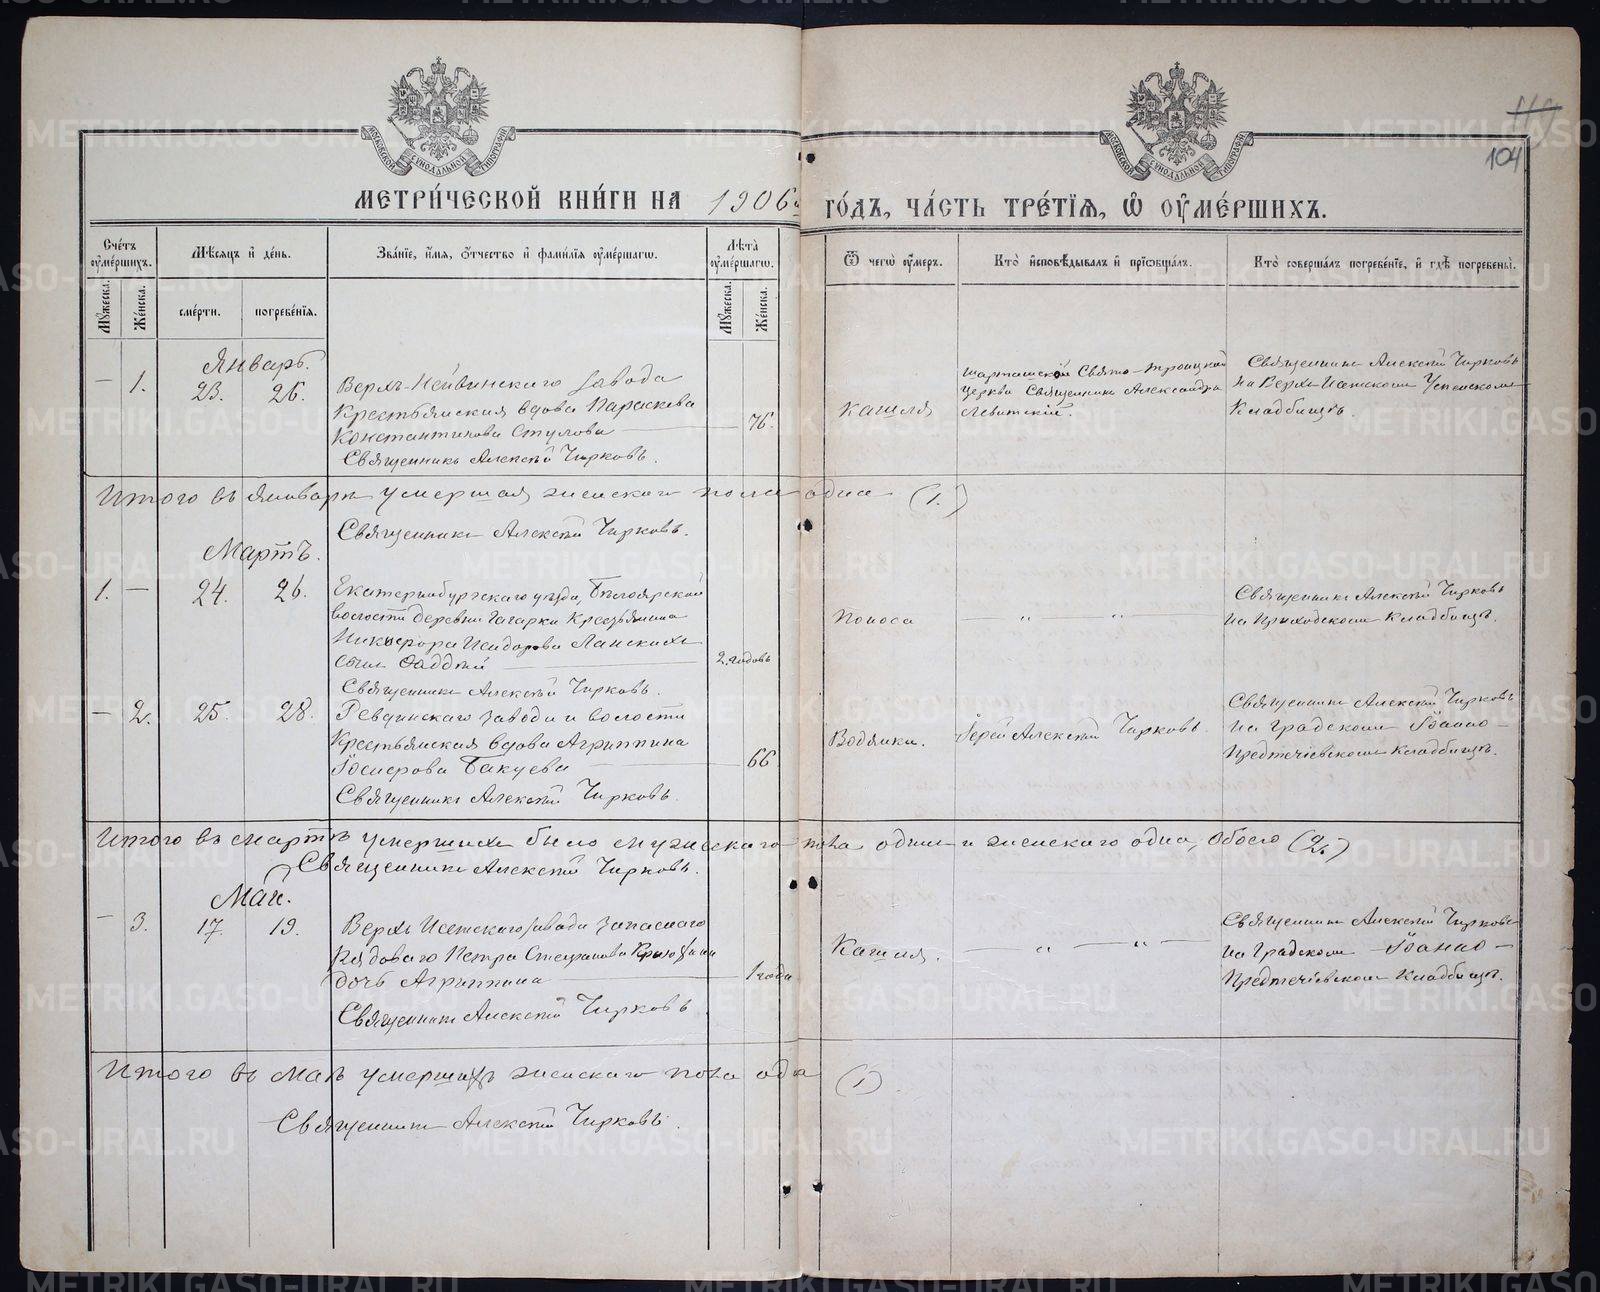 МОСКОВСКОЙ СѴНОДАЛЬНОЙ ТИПОГРАФІИ
МОСКОВСКОЙ СѴНОДАЛЬНОЙ ТИПОГРАФІИ
104
МЕТРИ́ЧЕСКОЙ КНИ́ГИ НА 1906й ГО́ДЪ, ЧА́СТЬ ТРЕ́ТІѦ, Ѽ ОУ҆МЕ́РШИХЪ.
Сче́тъ оу҆ме́ршихъ.
Мѣ́сяцъ и҆ де́нь.
Зва́нїе, и҆́мѧ, ѻ҆́тчество и҆ фами́лїѧ оу҆ме́ршагѡ.
Лѣ́та оу҆ме́ршагѡ.
Ѿ чегѡ̀ оу҆́меръ.
Кто̀ и҆сповѣ́дывалъ и҆ прїѡбща́лъ.
Кто̀ соверша́лъ погребе́нїе, и҆ гдѣ̀ погребены̀.
Мꙋ́жеска.
Же́нска.
сме́рти.
погребе́нїѧ.
Мꙋ́жеска.
Же́нска.
Январь.
— 1. 23. 26. Верхъ-Нейвинскаго завода
Крестьянская вдова Параскева
Константинова Стулова — 76.
Священникъ Алексѣй Чирковъ.
Кашля
Шарташской Свято-Троицкой
церкви Священникъ Александръ
Левитскій.
Священникъ Алексѣй Чирковъ
на Верхъ-Исетскомъ Успенскомъ
Кладбищѣ.
Итого въ январѣ умершая женскаго пола одна (1.)
Священникъ Алексѣй Чирковъ.
Мартъ.
1. — 24. 26. Екатеринбургскаго уѣзда, Бѣлоярской
волости деревни Гагарки Крестьянина
Никифора Исидорова Ланскихъ
сынъ Фаддей — 2. годовъ
Священникъ Алексѣй Чирковъ.
Поноса
" "
Священникъ Алексѣй Чирковъ
на Приходскомъ Кладбищѣ.
— 2. 25. 28. Ревдинскаго завода и волости
Крестьянская вдова Агриппина
66
Священникъ Алексѣй Чирковъ.
Водянки.
Іерей Алексѣй Чирковъ.
Священникъ Алексѣй Чирковъ
на Градскомъ Іоанно-
Предтечіевскомъ Кладбищѣ.
Итого въ мартѣ умершихъ было мужескаго пола одинъ и женскаго одна, обоего (2.)
Священникъ Алексѣй Чирковъ.
Май.
— 3. 17. 19. Верхъ-Исетскаго завода запаснаго
Рядоваго Петра Стефанова
дочь Агриппина — 1 года
Священникъ Алексѣй Чирковъ
Кашля.
— " — " —
Священникъ Алексѣй Чирковъ
на Градскомъ Іоанно-
Предтечіевскомъ Кладбищѣ.
Итого въ маѣ женскаго пола одна (1)
Священникъ Алексѣй Чирковъ.
METRIKI.GASO-URAL.RU